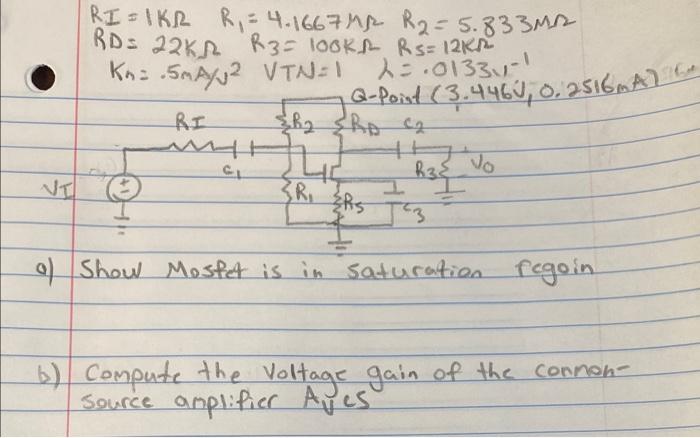 RI = 1KΩ R₁ = 4.1667MΩ R₂ = 5.833MΩ
RD = 22KΩ R3 = 100KΩ RS = 12KΩ
Kn = .5mA/V² VTN = 1 λ = .0133V⁻¹
Q-Point (3.446V, 0.2516mA)
RI R2 RD C2
C1 R3 Vo
VI R1 RS C3
a) Show Mosfet is in saturation regoin
b) Compute the Voltage gain of the common-
source amplifier